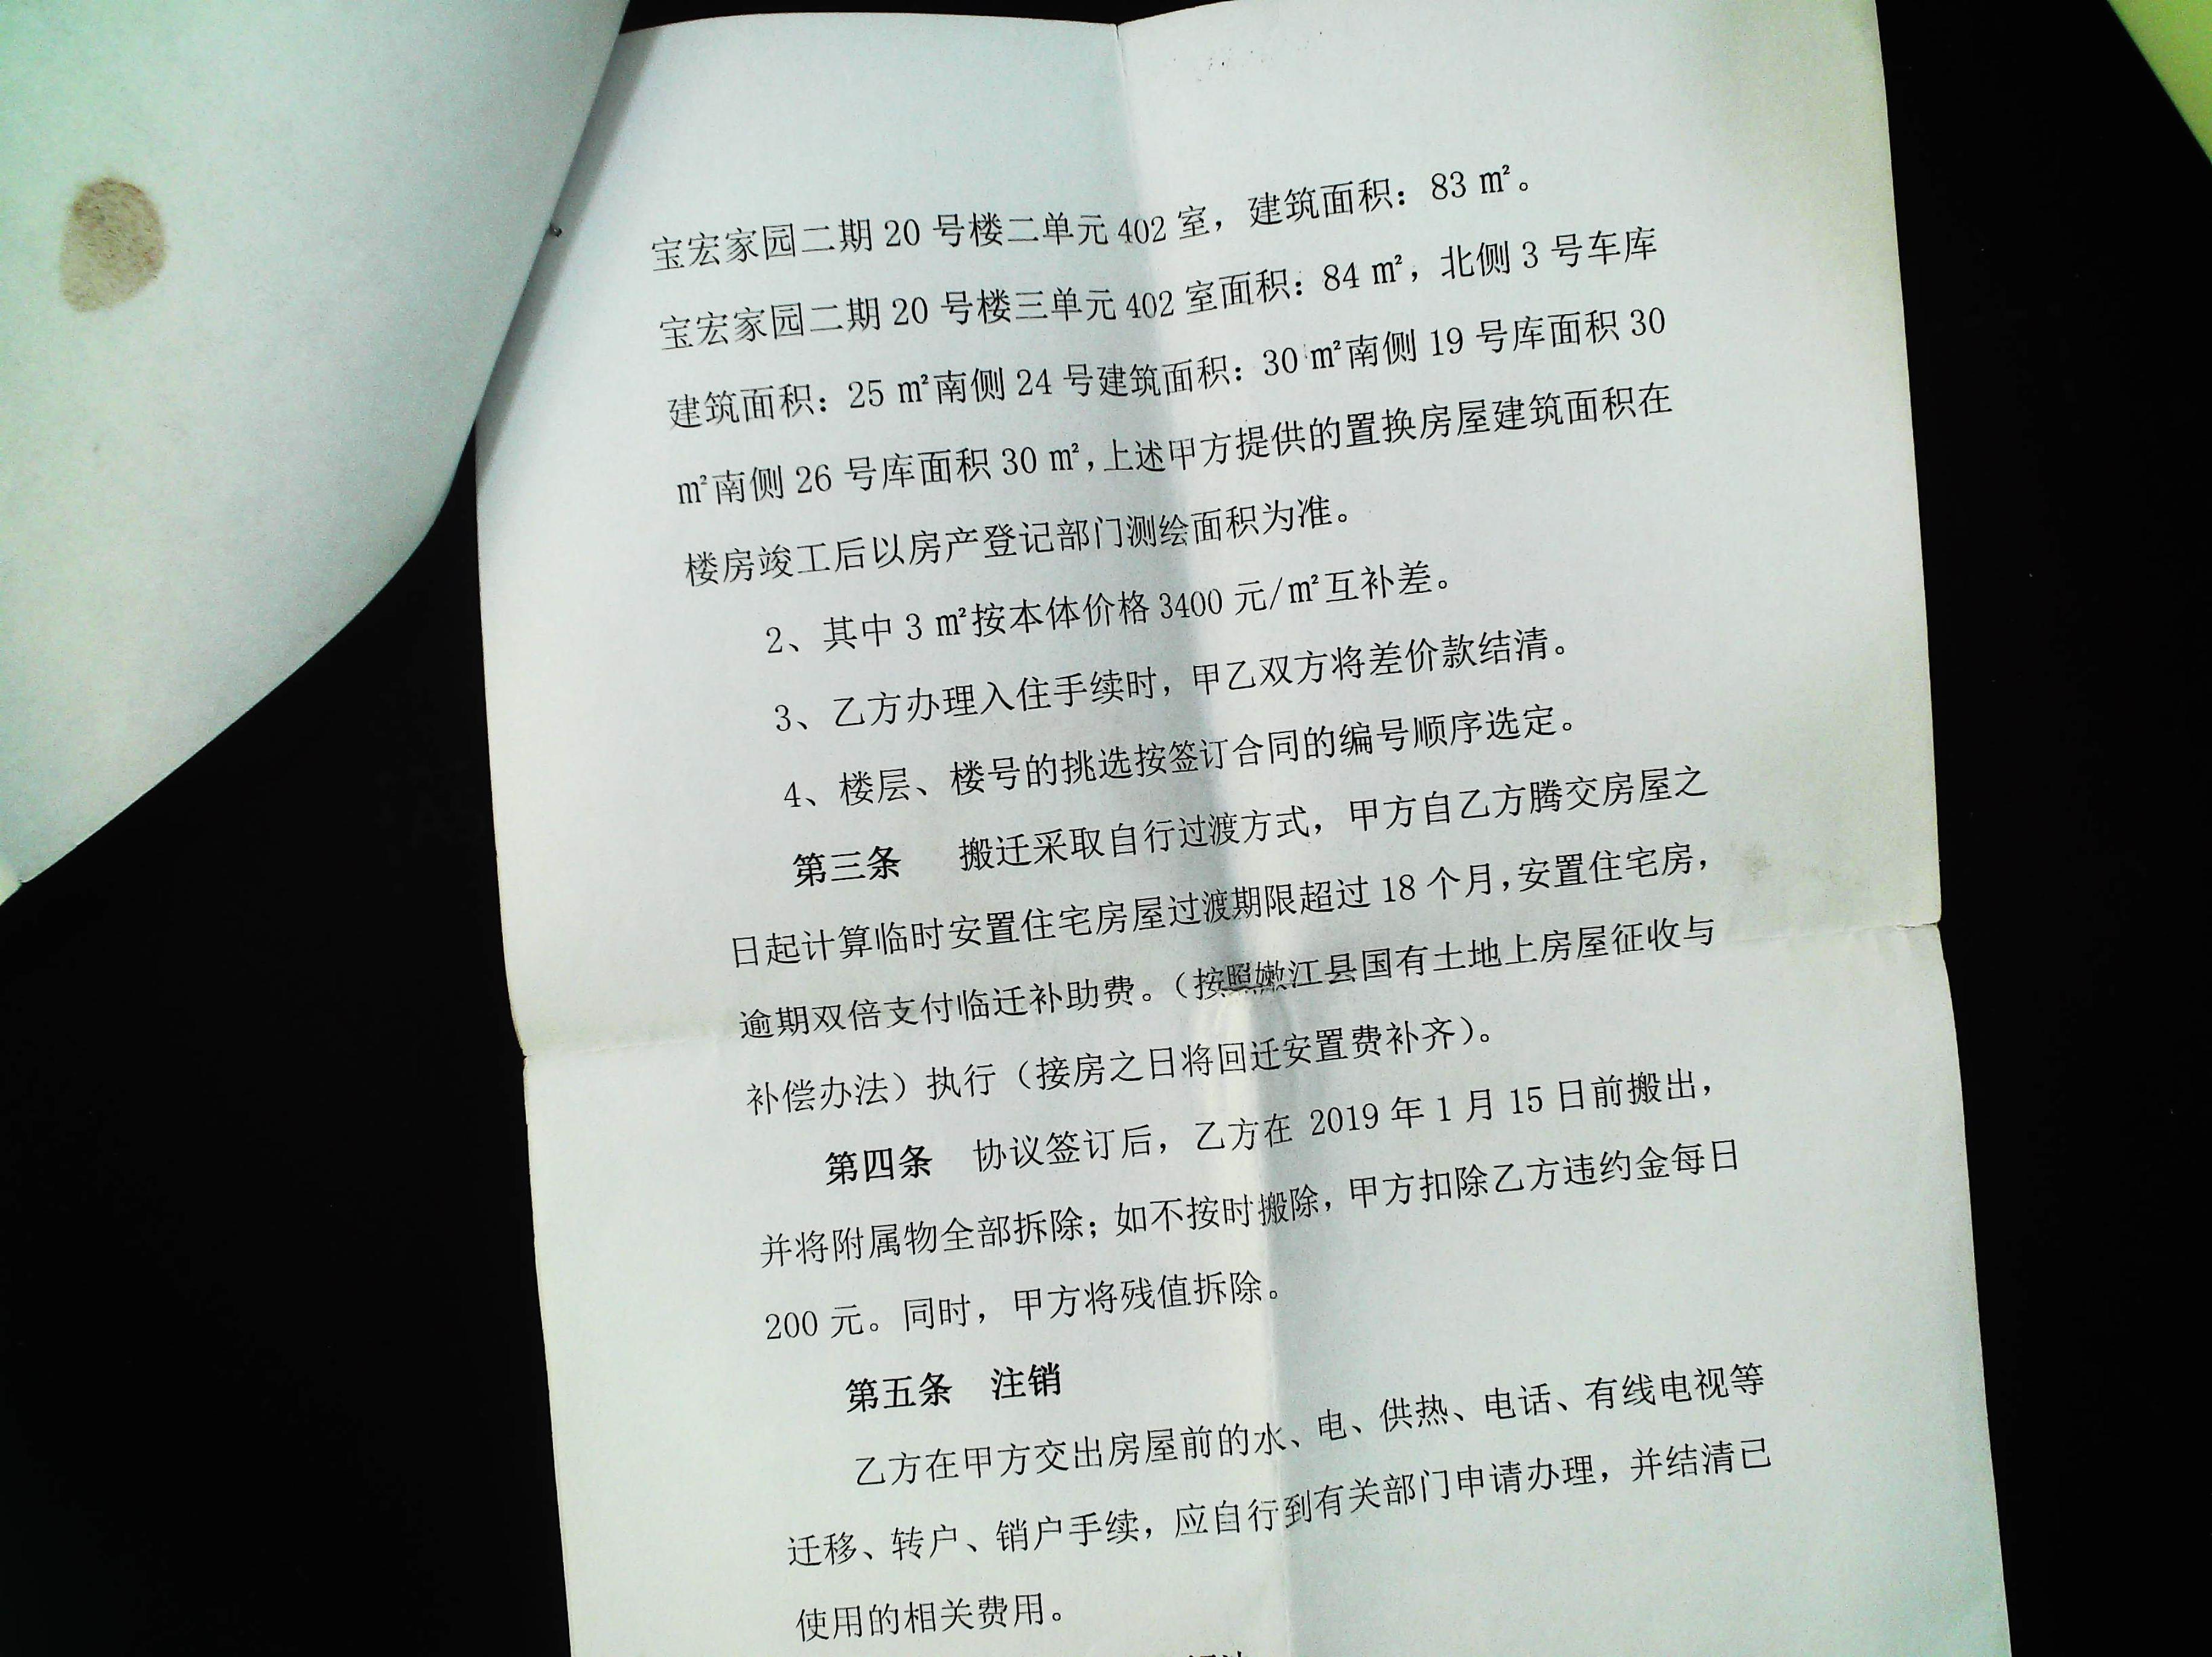 宝宏家园二期20号楼二单元402室，建筑面积：83㎡。
宝宏家园二期20号楼三单元402室面积：84㎡，北侧3号车库
建筑面积：25㎡南侧24号建筑面积：30㎡南侧19号库面积30
㎡南侧26号库面积30㎡，上述甲方提供的置换房屋建筑面积在
楼房竣工后以房产登记部门测绘面积为准。
2、其中3㎡按本体价格3400元/㎡互补差。
3、乙方办理入住手续时，甲乙双方将差价款结清。
4、楼层、楼号的挑选按签订合同的编号顺序选定。
第三条 搬迁采取自行过渡方式，甲方自乙方腾交房屋之
日起计算临时安置住宅房屋过渡期限超过18个月，安置住宅房，
逾期双倍支付临迁补助费。（按照嫩江县国有土地上房屋征收与
补偿办法）执行（接房之日将回迁安置费补齐）。
第四条 协议签订后，乙方在2019年1月15日前搬出，
并将附属物全部拆除；如不按时搬除，甲方扣除乙方违约金每日
200元。同时，甲方将残值拆除。
第五条 注销
乙方在甲方交出房屋前的水、电、供热、电话、有线电视等
迁移、转户、销户手续，应自行到有关部门申请办理，并结清已
使用的相关费用。